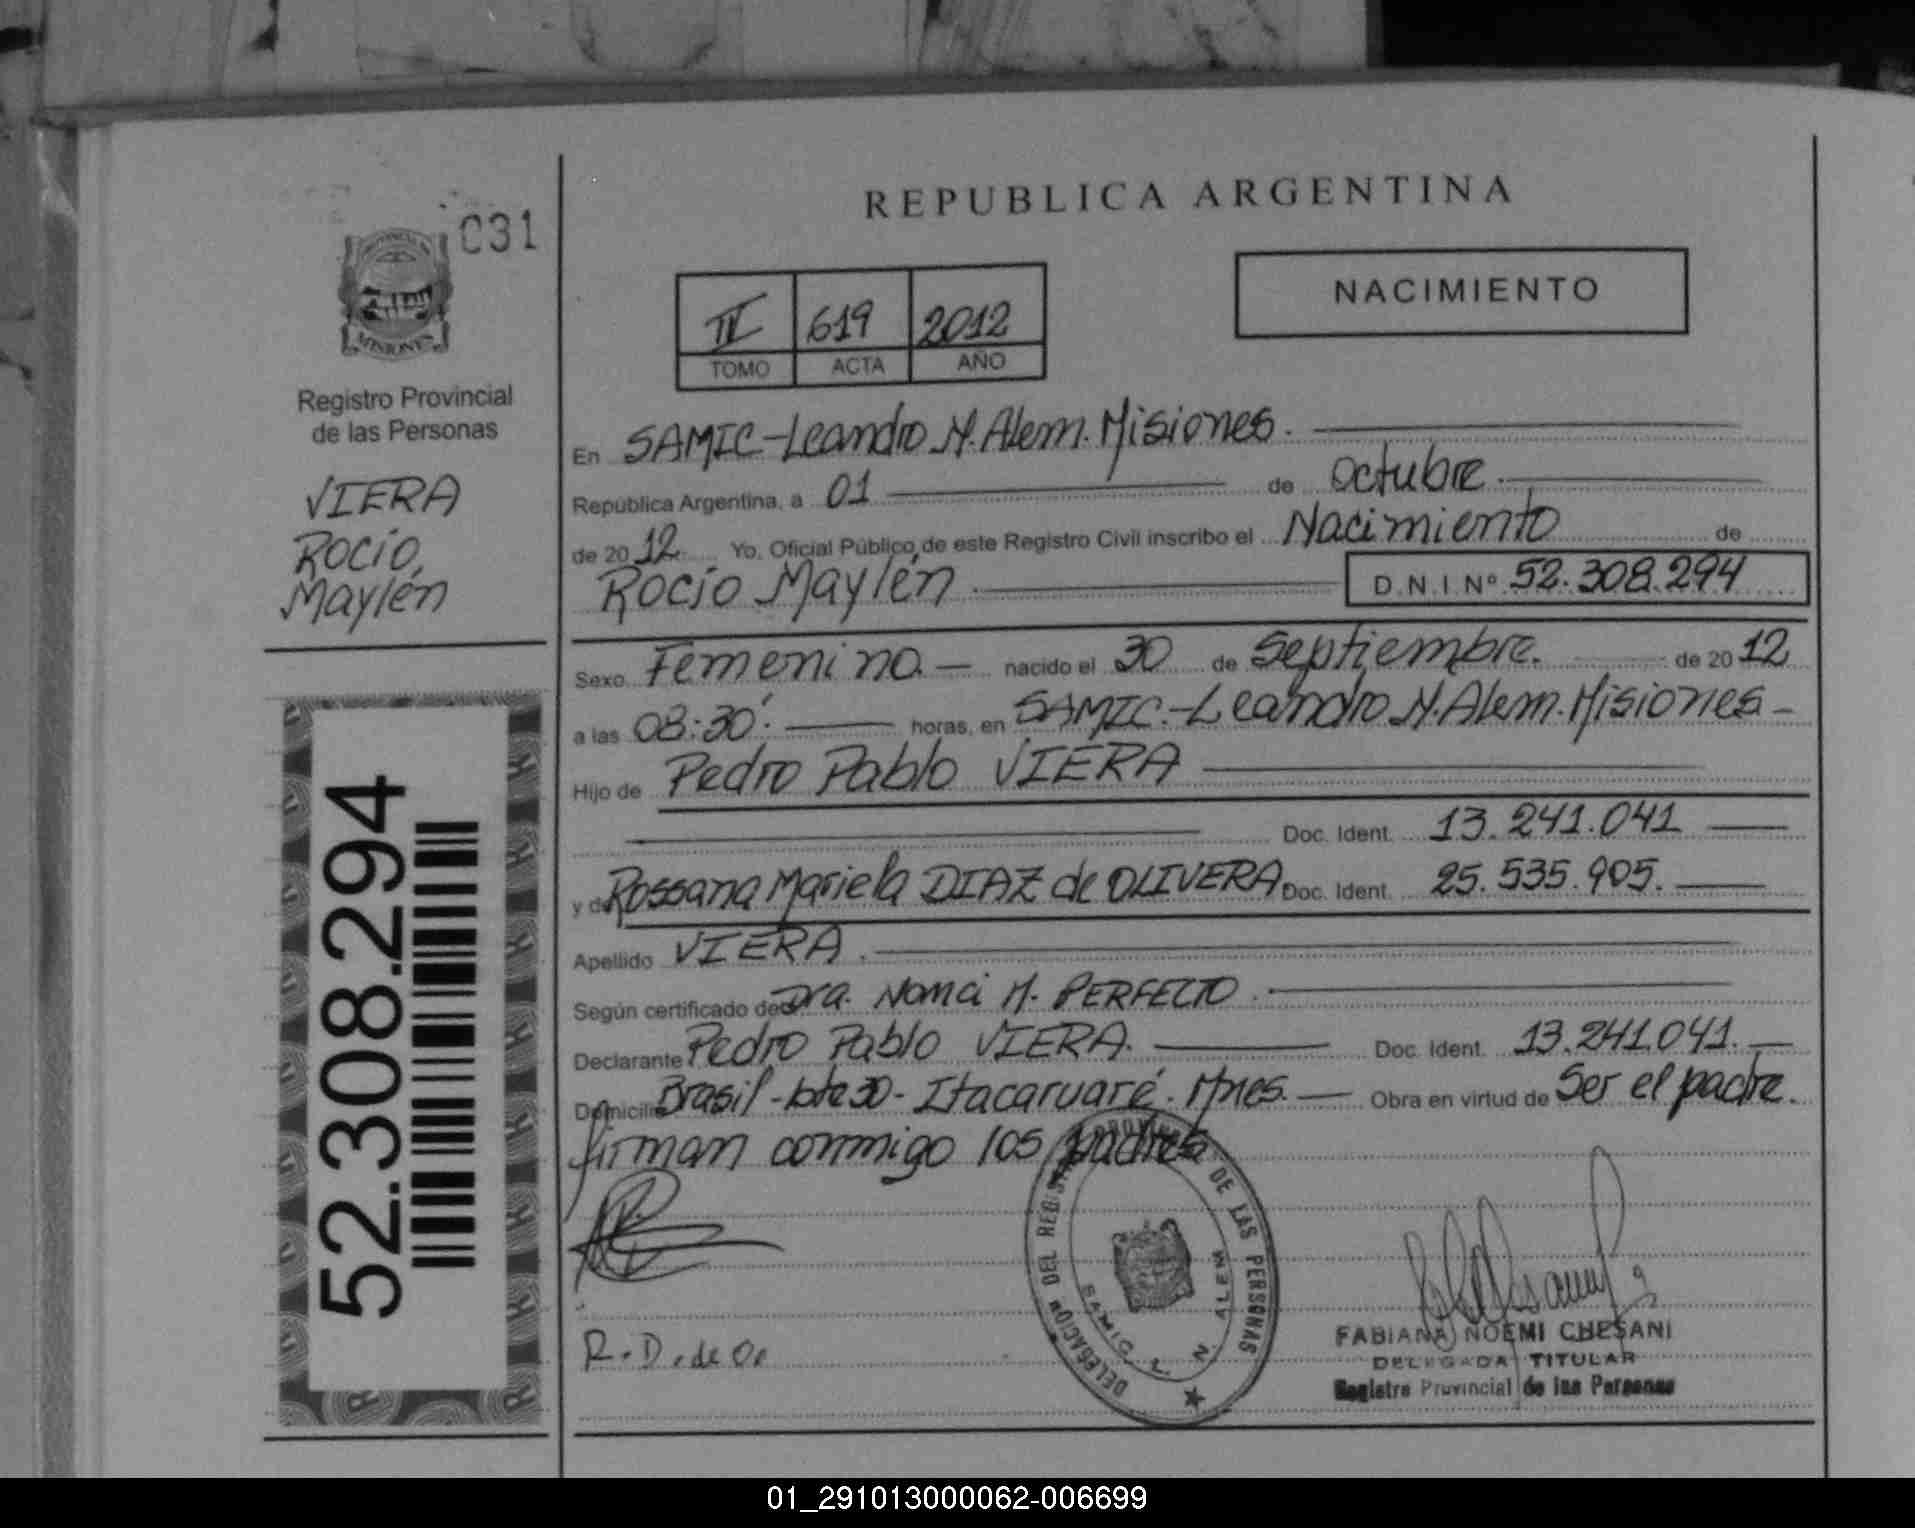 REPUBLICA ARGENTINA
C31
PROVINCIA DE
MISIONES
Registro Provincial
de las Personas
VIERA
Rocío,
Maylén
52.308.294
NACIMIENTO
619 2012
TOMO ACTA AÑO
En SAMIC-Leandro N. Alem. Misiones.
República Argentina, a 01 de octubre.
de 2012 Yo, Oficial Público de este Registro Civil inscribo el Nacimiento de
Rocío Maylén D.N.I. Nº 52.308.294
Sexo Femenino.- nacido el 30 de Septiembre. de 2012
a las 08:30'. horas, en SAMIC.-Leandro N. Alem. Misiones-
Hijo de Pedro Pablo VIERA
Doc. Ident. 13.241.041
y de Rossana Mariela DIAZ de OLIVERA Doc. Ident. 25.535.905.
Apellido VIERA.
Según certificado de Dra. M. PERFECTO.
Declarante Pedro Pablo VIERA. Doc. Ident. 13.241.041.
Domicilio Brasil-lote 30-Itacaruaré. Mnes. Obra en virtud de Ser el padre.
firman conmigo los padres
R.D. de O.
DELEGACION DEL REGISTRO PROVINCIAL DE LAS PERSONAS
SAMIC L. N. ALEM
FABIANA NOEMI CHESANI
DELEGADA TITULAR
Registro Provincial de las Personas
01_291013000062-006699